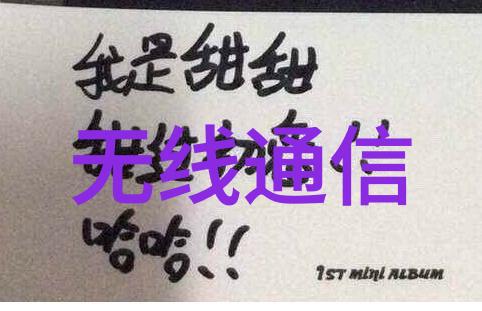 我是甜甜
甜
无线通信
哈哈!!
1ST MINI ALBUM